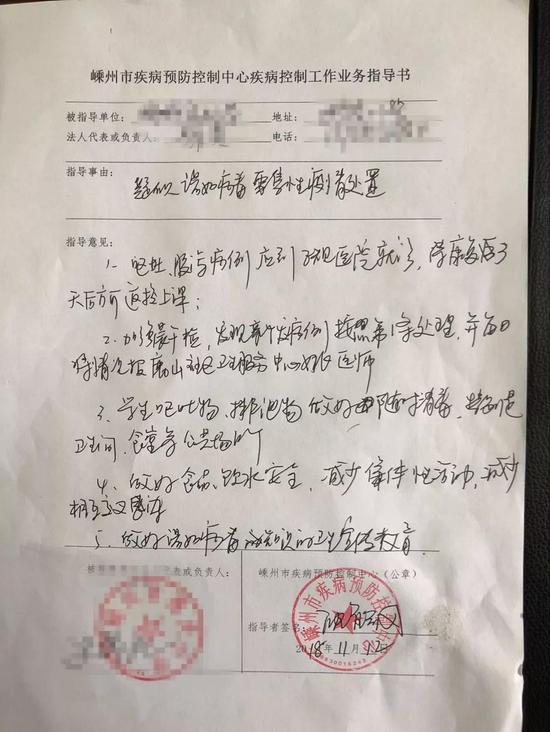 嵊州市疾病预防控制中心疾病控制工作业务指导书
被指导单位： 地址：
法人代表或负责人： 电话：
指导事由：
疑似诺如病毒零售性疫情处置
指导意见：
1、呕吐、腹泻病例应到正规医院就诊，等康复后3
天后方可返校上课；
2、加强晨午检，发现新发病例按照第1条处理，并每日
将情况报鹿山社区卫生服务中心 医师
3、学生呕吐物、排泄物做好随时消毒，特别是
卫生间、食堂等公共场所
4、做好食品、饮水安全，减少集体性活动，减少
相互交叉感染
5、做好诺如病毒 知识的卫生宣传教育。
代表或负责人：
嵊州市疾病预防控制中心（公章）
指导者签名：
2018年11月12日
嵊州市疾病预防控制中心